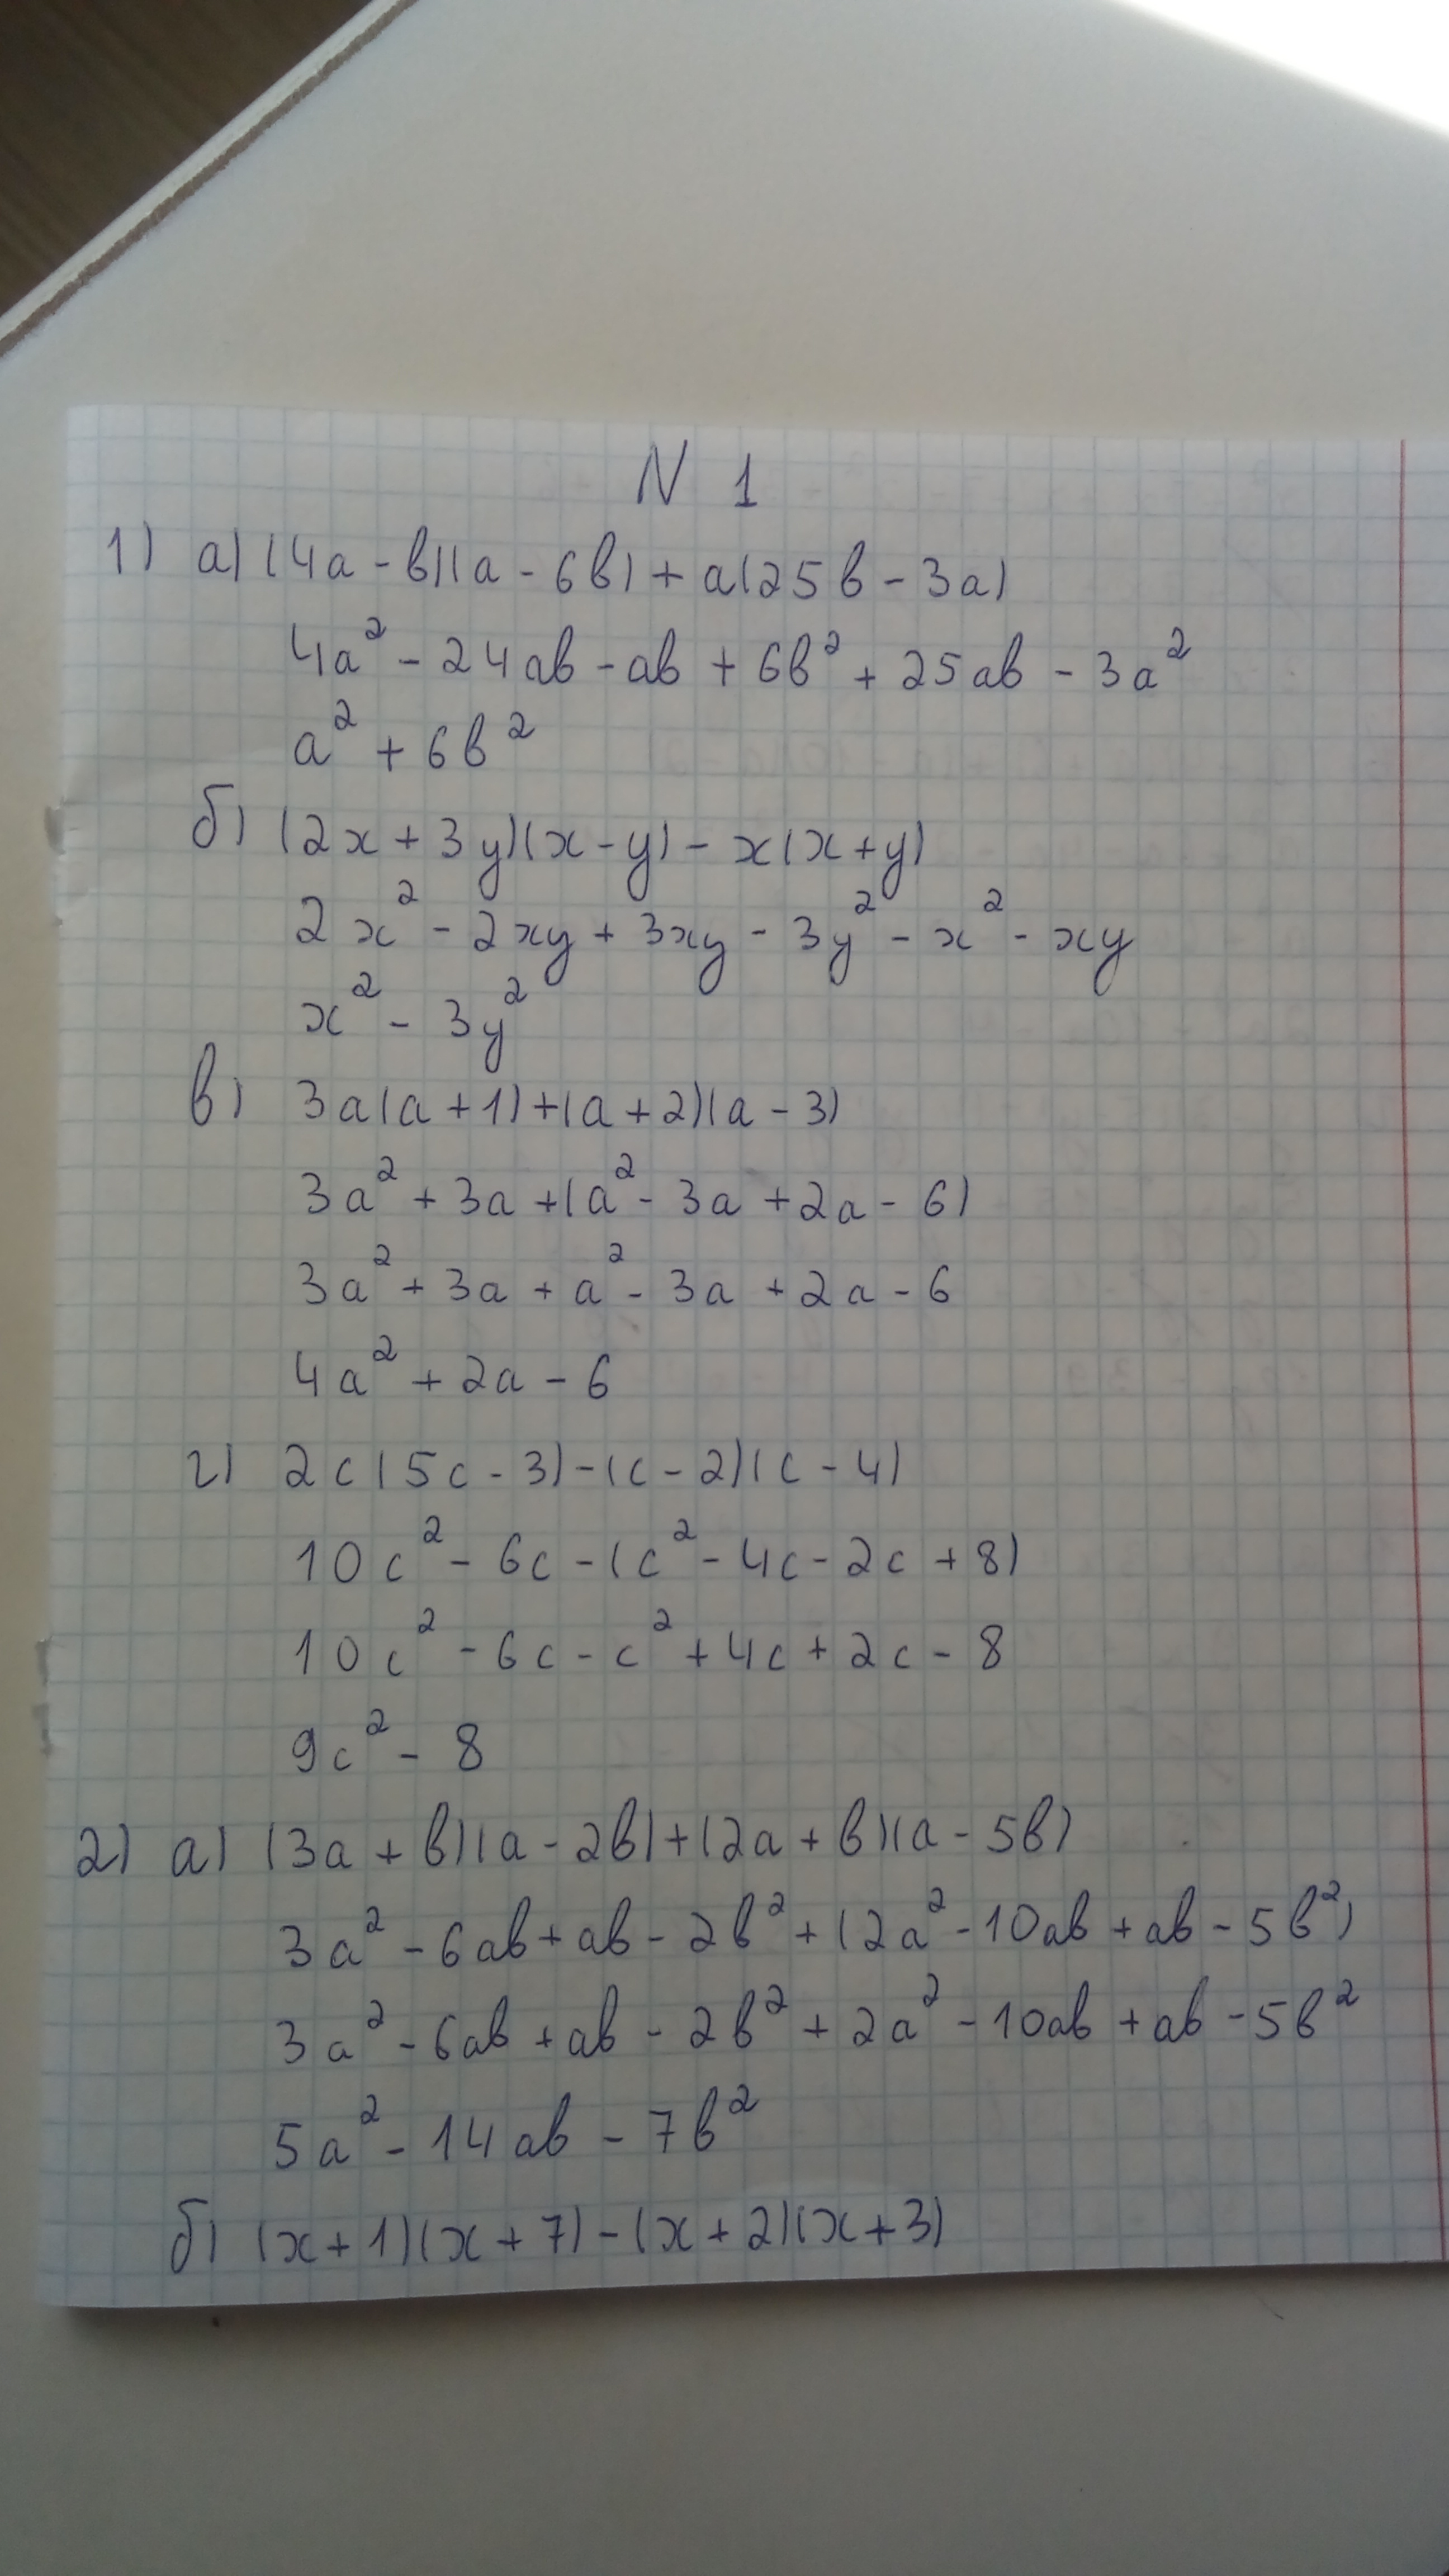 N 1
1) а) (4a - b)(a - 6b) + a(25b - 3a)
4a² - 24ab - ab + 6b² + 25ab - 3a²
a² + 6b²
б) (2x + 3y)(x - y) - x(x + y)
2x² - 2xy + 3xy - 3y² - x² - xy
x² - 3y²
в) 3a(a + 1) + (a + 2)(a - 3)
3a² + 3a + (a² - 3a + 2a - 6)
3a² + 3a + a² - 3a + 2a - 6
4a² + 2a - 6
г) 2c(5c - 3) - (c - 2)(c - 4)
10c² - 6c - (c² - 4c - 2c + 8)
10c² - 6c - c² + 4c + 2c - 8
9c² - 8
2) а) (3a + b)(a - 2b) + (2a + b)(a - 5b)
3a² - 6ab + ab - 2b² + (2a² - 10ab + ab - 5b²)
3a² - 6ab + ab - 2b² + 2a² - 10ab + ab - 5b²
5a² - 14ab - 7b²
б) (x + 1)(x + 7) - (x + 2)(x + 3)